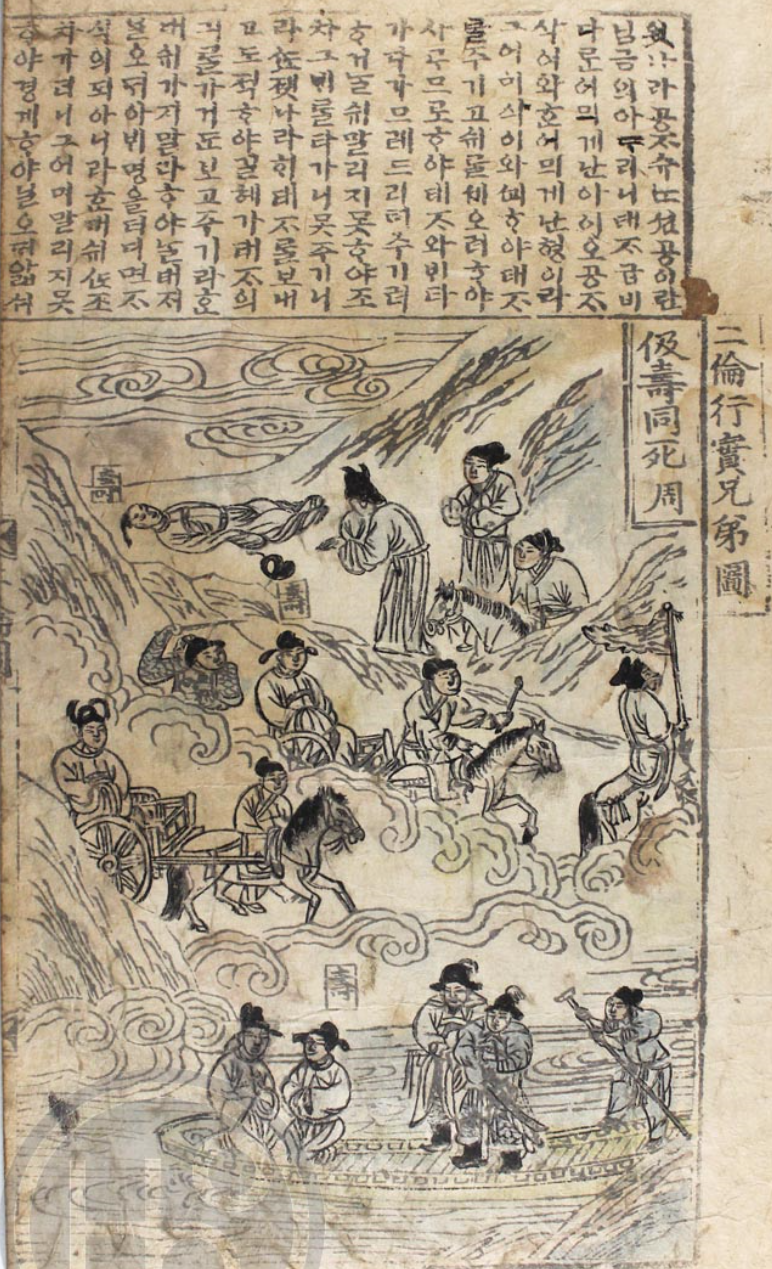 二倫行實兄弟圖
님금의아ᄃᆞ리니태ᄌᆞ급비
다ᄅᆞᆫ어믜게난아이오공ᄌᆞ
삭이와ᄒᆞᆫ어믜게난형이라
그어미삭이와ᄭᅬᄒᆞ야태ᄌᆞ
ᄅᆞᆯ주기고쉬ᄅᆞᆯ셰오려ᄒᆞ야
사ᄅᆞᄆᆞ로ᄒᆞ야태ᄌᆞ와ᄇᆡ타
가다가므레드리텨주기려
ᄒᆞ거ᄂᆞᆯ쉬말리지못ᄒᆞ야조
차그ᄇᆡᄅᆞᆯ타가니못주기니
라ᄯᅩ졧나라ᄒᆡ태ᄌᆞᄅᆞᆯ보내
고도적ᄒᆞ야길헤가태ᄌᆞ의
긔ᄅᆞᆯ가거든보고주기라ᄒᆞᆫ
대쉬가지말라ᄒᆞ야ᄂᆞᆯ태ᄌᆡ
닐오ᄃᆡ아ᄇᆡ명을더디면ᄌᆞ
식의되아니라ᄒᆞᆫ대쉬ᄯᅩ조
차가려니그어미말리지못
ᄒᆞ야경계ᄒᆞ야닐오ᄃᆡ앏셔
伋壽同死 周
壽
壽